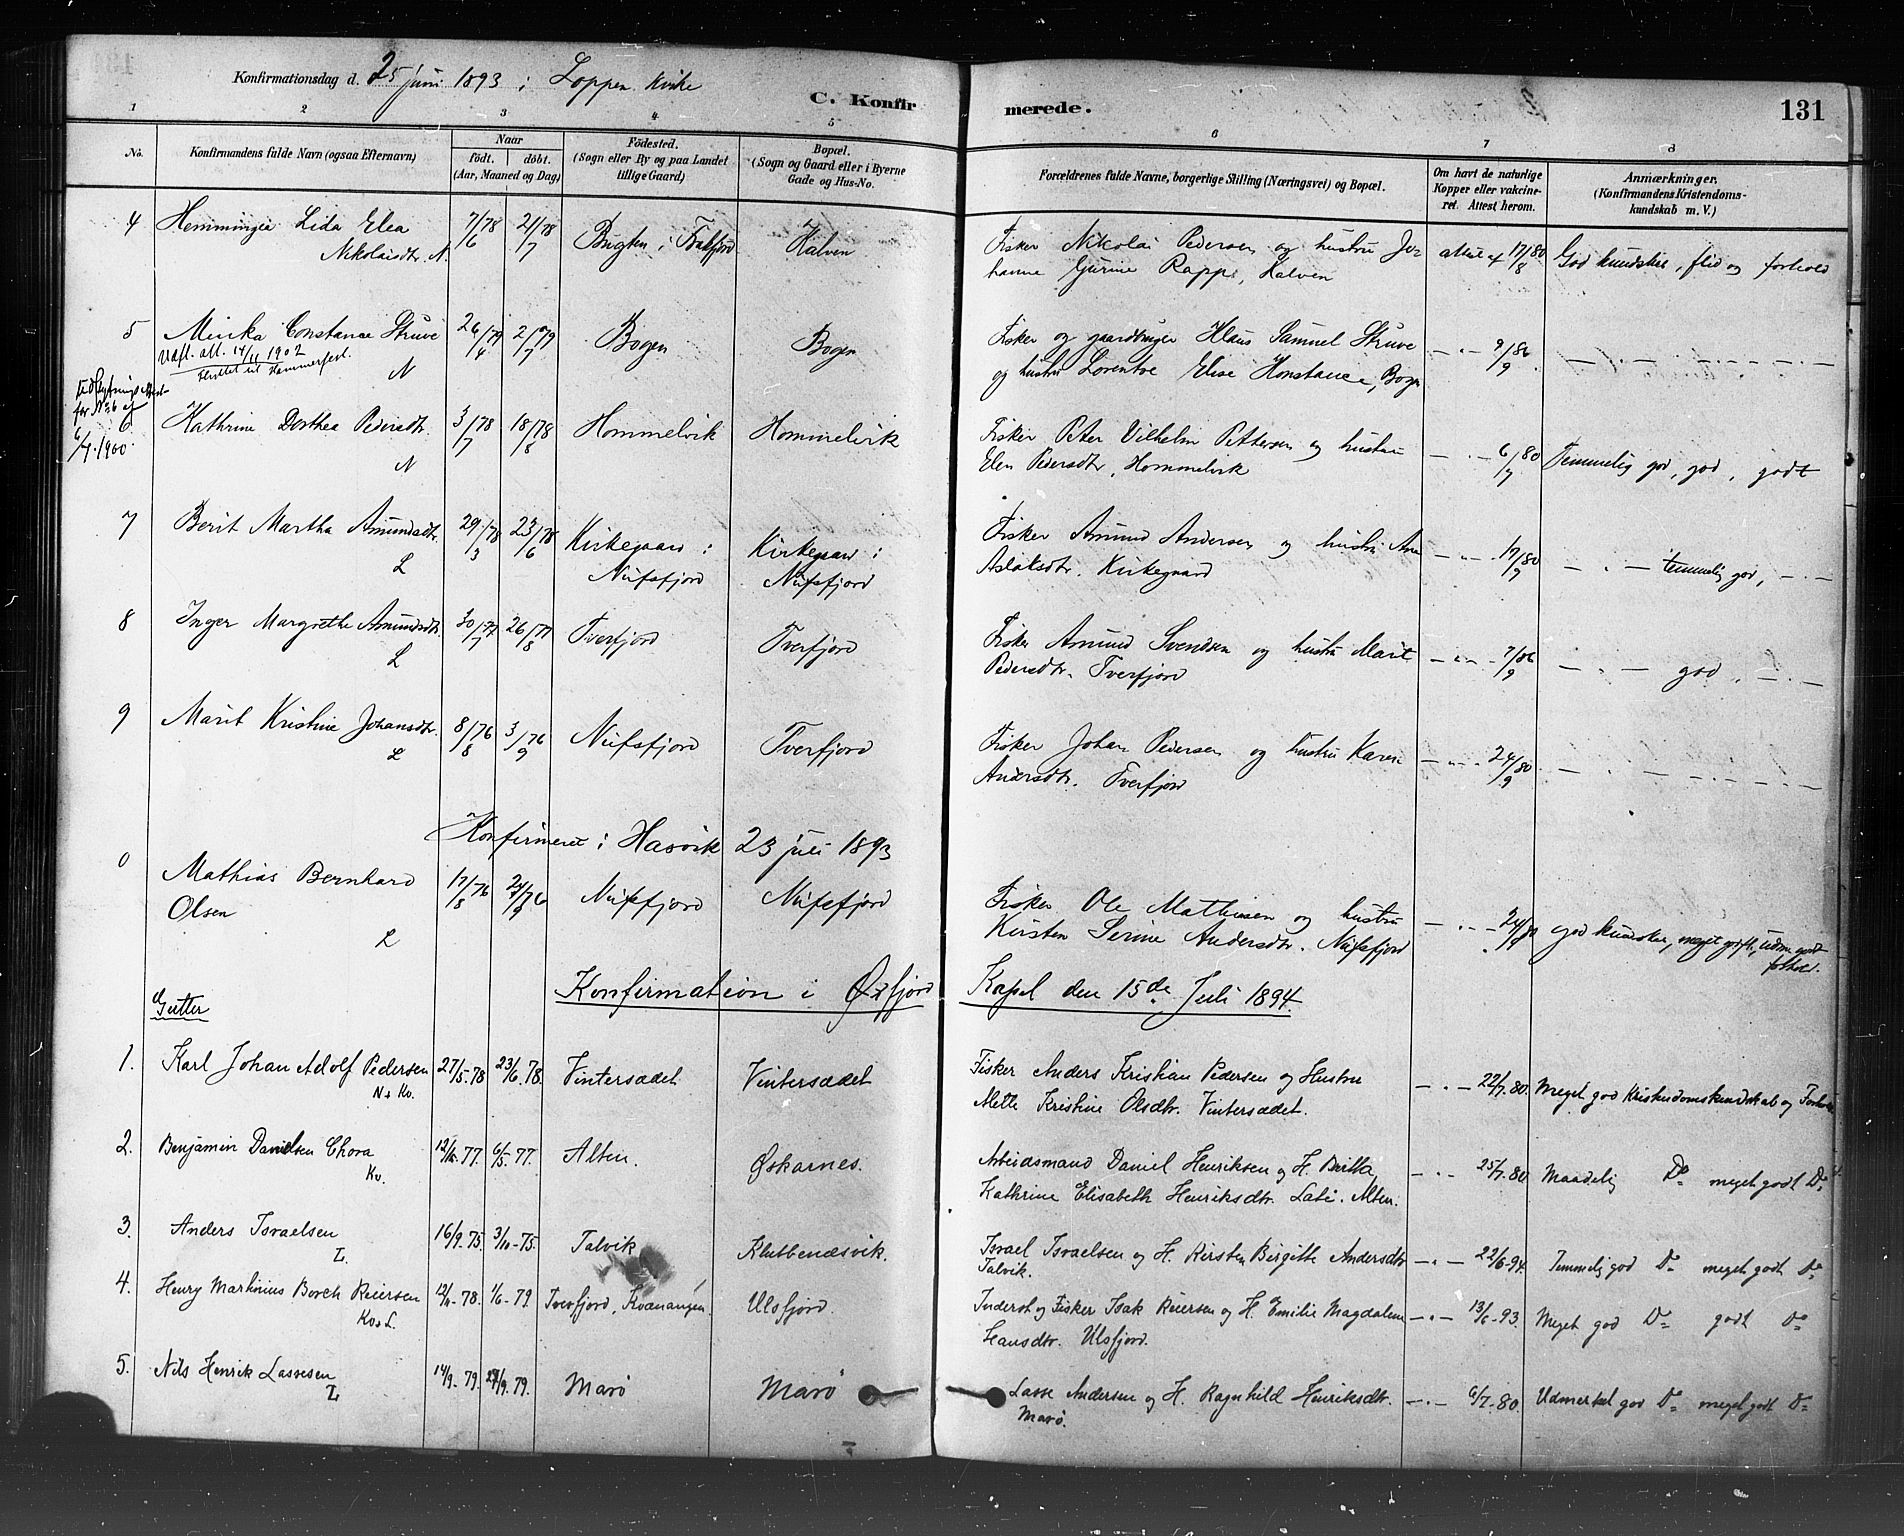 Konfirmationsdag d. 25 juni 1893 i Loppen Kirke
C. Konfir merede. 131
1 2 3 4 5 6 7 8
No. Konfirmandens fulde Navn (ogsaa Efternavn) Naar født. døbt. (Aar, Maaned og Dag) Fødested. (Sogn eller By og paa Landet tillige Gaard) Bopæl. (Sogn og Gaard eller i Byerne Gade og Hus-No. Forældrenes fulde Navne, borgerlige Stilling (Næringsvei) og Bopæl. Om havt de naturlige Kopper eller vakcineret. Attest herom. Anmærkninger. (Konfirmandens Kristendomskundskab m. V.)
4 Hemmingea Lida Elea 7/6 78 21/7 78 Bugten i Halven Fisker Nikolai Pedersen og hustru Jo- attest af 17/8 80 God kundskb, flid og forhold
Nikolaisdtr. N. hanne Gurine Rapp, Halven
5 Minka Constance Struve 26/4 79 2/7 79 Bogen Bogen Fisker og gaardbruger Klaus Samuel Struve — " — 9/9 86 — " —
Udfl. att. 14/11 1902
flyttet til Hammerfest.
N og hustru Lorentse Elise Konstance, Bogen
Udflytnings Attest
for No 6 af
6/4. 1900
6 Kathrine Dorthea Pedersdtr. 3/7 78 18/8 78 Hommelvik Hommelvik Fisker Peter Vilhelm Pettersen og hustru — " — 6/7 80 Temmelig god, god, godt
N Elen Pedersdtr, Hommelvik
7 Berit Martha Amundsdtr. 29/3 78 23/6 78 Kirkegaard i Kirkegaard i Fisker Amund Andersen og hustru Ane — " — 17/9 80 — " — temmelig god, — " —
L Nufsfjord Nufsfjord Aslaksdtr. Kirkegaard
8 Inger Margrethe Amundsdtr. 30/7 77 26/8 77 Tverfjord Tverfjord Fisker Amund Svendsen og hustru Marit — " — 7/9 86 — " — god, — " —
L Pedersdtr. Tverfjord
9 Marit Kristine Johansdtr. 8/8 76 3/9 76 Nufsfjord Tverfjord Fisker Johan Pedersen og hustru Karen — " — 24/9 80 — " —
L Andersdtr. Tverfjord
Konfirmeret i Hasvik 23 juli 1893
0 Mathias Bernhard 17/8 76 24/9 76 Nufsfjord Nufsfjord Fisker Ole Mathisen og hustru — " — 24/9 80 god kundskb, meget god flid, udm. godt
Olsen Kirsten Serine Andersdtr. Nufsfjord forhold.
L
Konfirmation i Øxfjord Kapel den 15de Juli 1894.
Gutter
1. Karl Johan Adolf Pedersen 27/5-78 23/6.78. Vintersædet Vintersædet Fisker Anders Kristian Pedersen og Hustru — " — 22/7.80. Meget god Kristendomskundskab og Forhold
N + Kv. Mette Kristine Olsdtr. Vintersædet.
2. Benjamin Danielsen Chora 77. 6/5.77. Alten. Øskarnes. Arbeidsmand Daniel Henriksen og H. Britta — " — 25/7.80 Maadelig Do meget godt Do
Kv. Kathrine Elisabeth Henriksdtr. Alten.
3. Anders Israelsen 16/9-75. 3/10-75. Talvik Klubbenæsvik. Israel Israelsen og H. Kirsten Birgitte Andersdtr — " — 22/6-94. Temmelig god Do meget godt Do
L. Talvik.
4. Henry Martinius Borch Reiersen 12/11-78. 1/6-79. Tverfjord, Kvænangen Ulsfjord. Inderst og Fisker Isak Reiersen og H. Emilie Magdalene — " — 13/6-93. Meget god Do godt Do
Kv + L. Hansdtr. Ulsfjord.
5. Nils Henrik Lassesen 14/9.79. 79. Marö Marö Lasse Andersen og H. Ragnhild Henriksdtr. — " — 6/7-80. Udmerket god Do meget godt Do
L Marö.